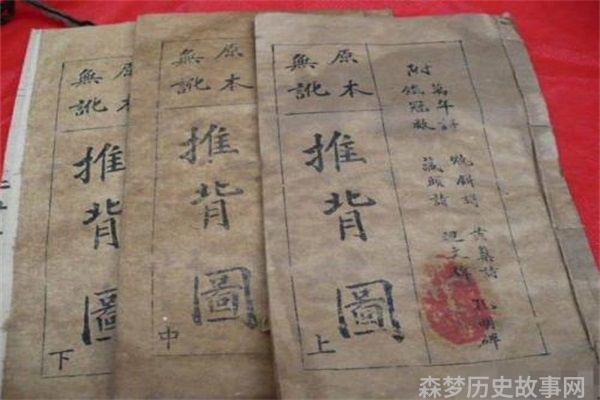 黃蘗詩
孔明碑
燒餅謌
附
藏頭詩
原本
無訛
推背圖
上
原本
無訛
推背圖
中
原本
無訛
推背圖
下
森梦历史故事网